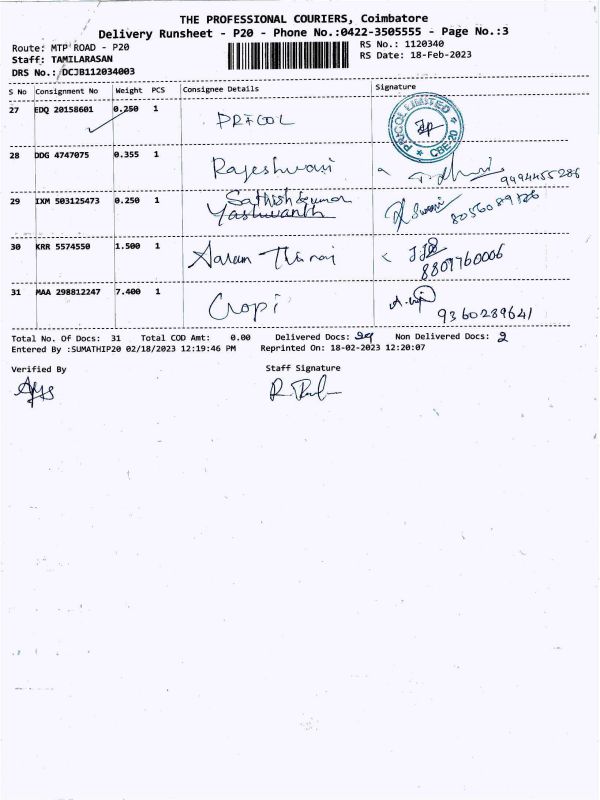 THE PROFESSIONAL COURIERS, Coimbatore
Delivery Runsheet - P20 - Phone No.:0422-3505555 - Page No.:3
Route: MTP ROAD - P20
RS No.: 1120340
Staff: TAMILARASAN
RS Date: 18-Feb-2023
DRS No.: DCJB112034003
S No Consignment No Weight PCS Consignee Details Signature
27 EDQ 20158601 0.250 1 PRICOL
PRICOL LIMITED CBE-20
28 DDG 4747075 0.355 1 Rajeshwari 9494455286
29 IXM 503125473 0.250 1 Sathish kumar
Yashwanth
30 KRR 5574550 1.500 1 8807760006
31 MAA 298812247 7.400 1 Cropi 9360289641
Total No. Of Docs: 31 Total COD Amt: 0.00 Delivered Docs: 29 Non Delivered Docs: 2
Entered By :SUMATHIP20 02/18/2023 12:19:46 PM Reprinted On: 18-02-2023 12:20:07
Verified By Staff Signature